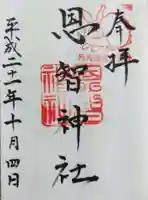 奉拝
恩智神社
平成二十一年十月四日